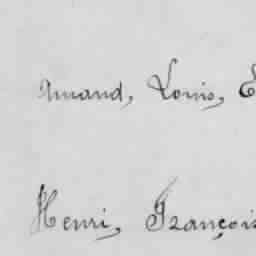 Amand, Louis, E
Henri, François